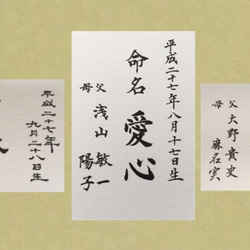 平成二十七年八月十七日生
命名 愛心
父 浅山 敏一
母 陽子
父 大野貴史
母 麻名実
平成二十七年
九月二十八日生